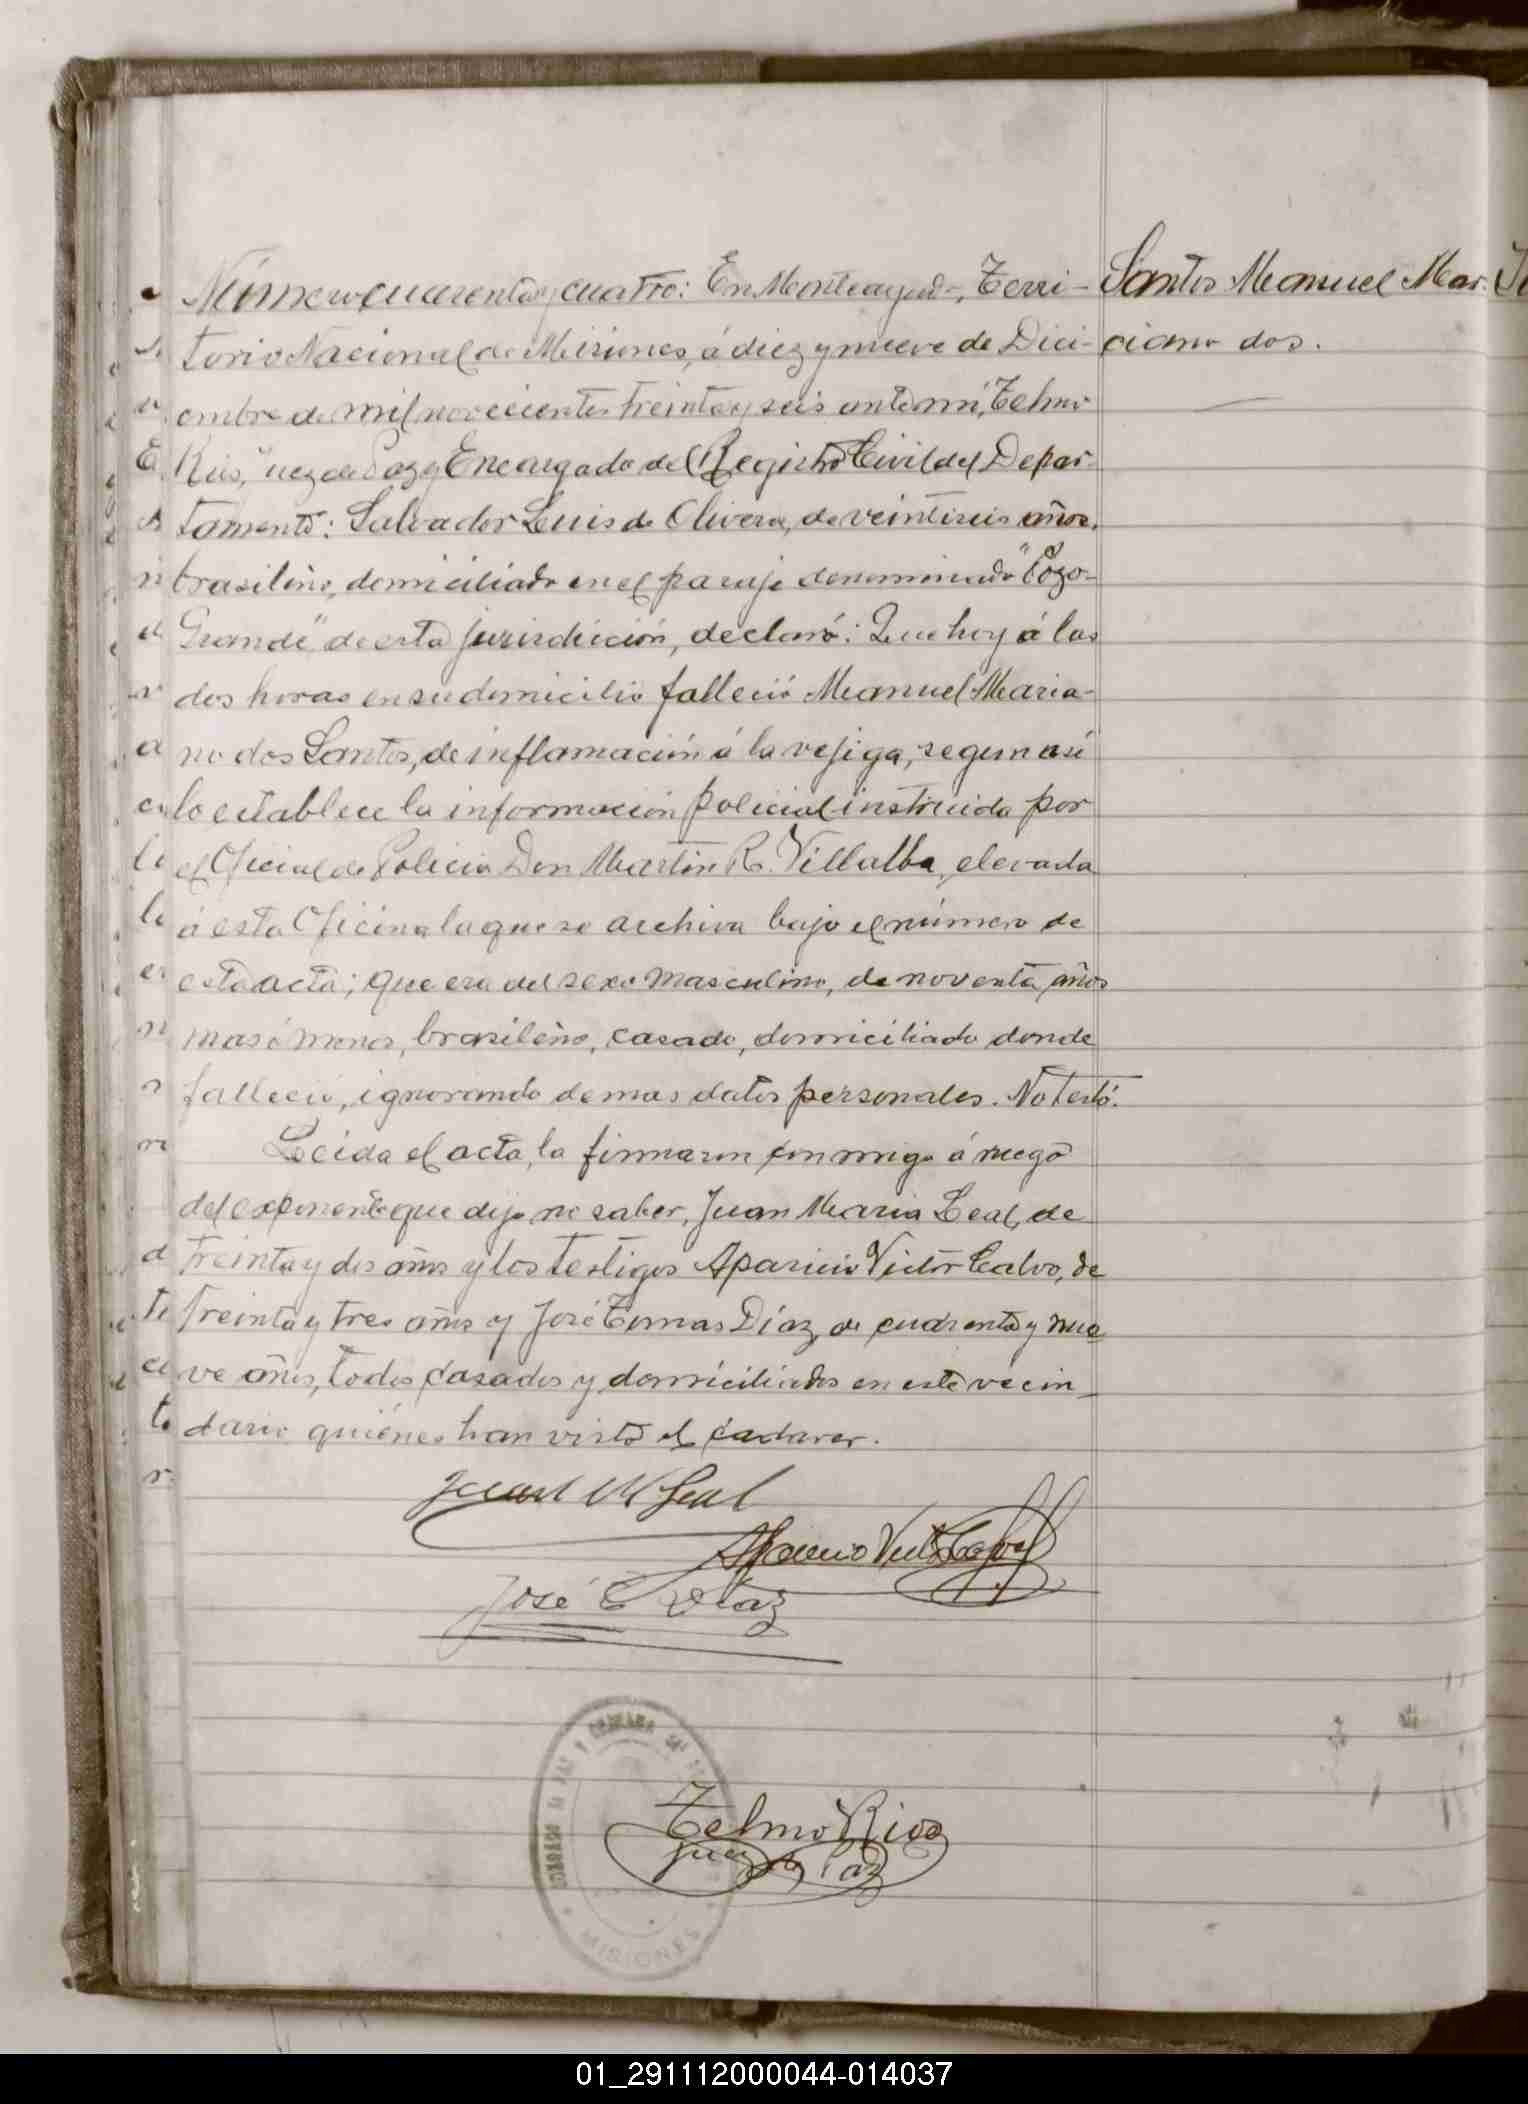 Número cuarenta y cuatro: En Monteagudo, Terri-
torio Nacional de Misiones, á diez y nueve de Dici-
embre de mil novecientos treinta y seis ante mí, Telmo
Rios, Juez de Paz y Encargado del Registro Civil del Depar-
tamento: Salvador Luis de Olivera, de veintiseis años,
brasileño, domiciliado en el paraje denominado "Pozo-
Grande" de esta jurisdicción, declaró: Que hoy á las
dos horas en su domicilio falleció Manuel Maria-
no dos Santos, de inflamación á la vejiga, segun asi
lo establece la información policial instruida por
el Oficial de Policia Don Martin R. Villalba, elevada
á esta Oficina la que se archiva bajo el número de
esta acta; que era del sexo masculino, de noventa años
mas ó menos, brasileño, casado, domiciliado donde
falleció, ignorando demas datos personales. No testó.
Leida el acta, la firmaron conmigo á ruego
del exponente que dijo no saber, Juan Maria Leal, de
treinta y dos años y los testigos Aparicio Victor Calvo, de
treinta y tres años y José Tomas Díaz, de cuarenta y nue
ve años, todos casados y domiciliados en este vecin-
dario quiénes han visto el cadaver.
Santos Manuel Mar.
ciano dos.
Juan M Leal
Aparicio Victor Calvo
José T Diaz
Telmo Rios
Juez de Paz
MISIONES
01_291112000044-014037